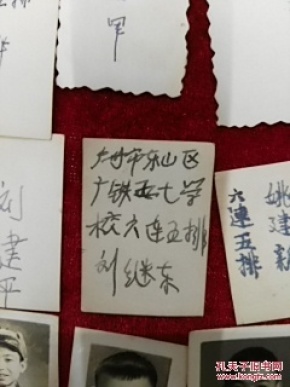 排
广州市东山区
广铁五七学
校六连五排
刘继东
刘建平
姚建新
六連五排
孔夫子旧书网